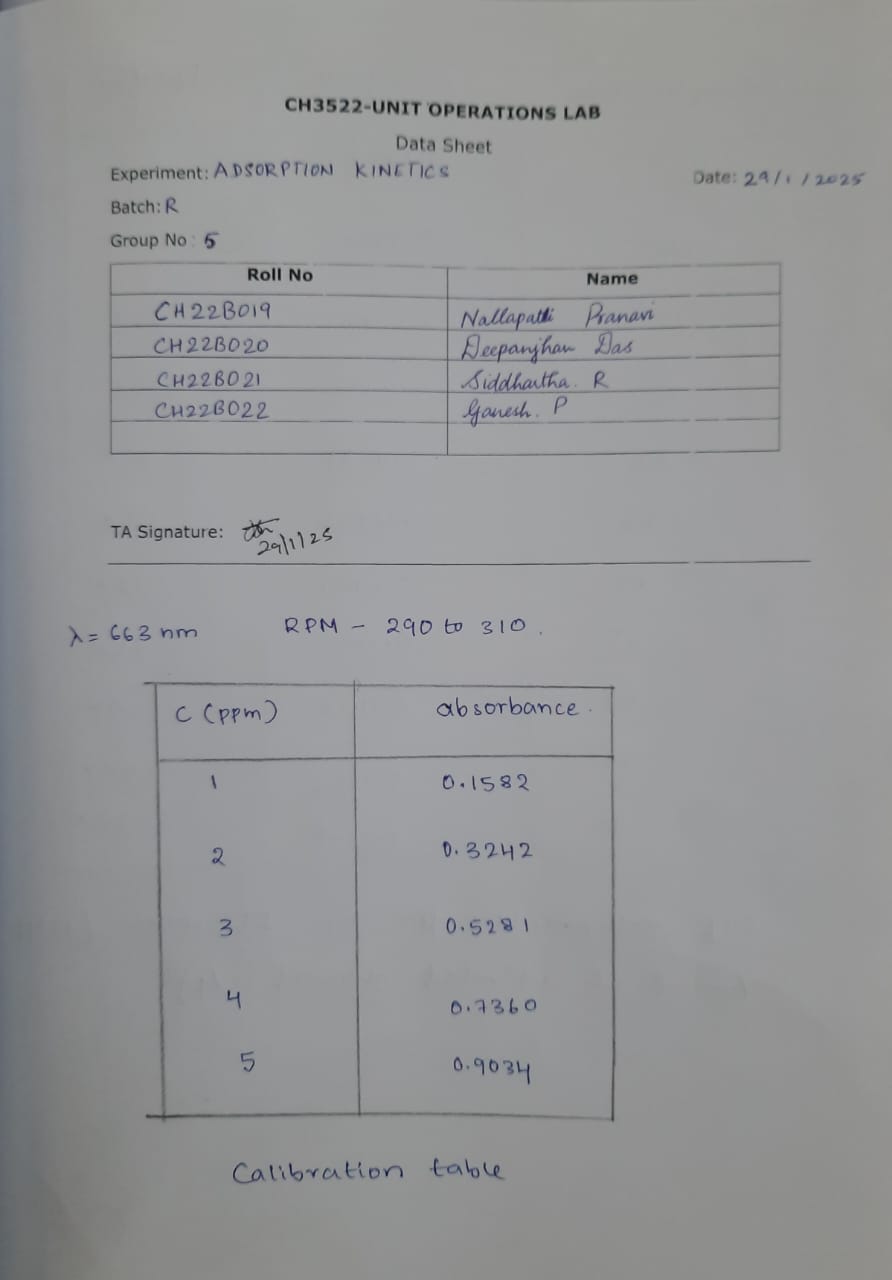 CH3522-UNIT OPERATIONS LAB
Data Sheet
Experiment: ADSORPTION KINETICS Date: 29/1/2025
Batch: R
Group No: 5
Roll No Name
CH22B019 Nallapatti Pranavi
CH22B020 Deepanjhan Das
CH22B021 Siddhartha. R
CH22B022 Ganesh. P
TA Signature:
29/1/25
λ = 663 nm RPM - 290 to 310.
C (ppm) absorbance.
1 0.1582
2 0.3242
3 0.5281
4 0.7360
5 0.9034
Calibration table